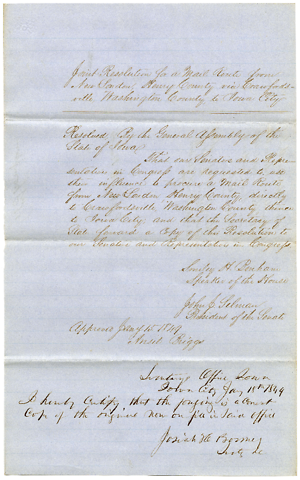 Joint Resolution for a Mail Route from
New London, Henry County via Crawfords-
ville Washington County to Iowa City
Resolved By the General Assembly of the
State of Iowa,
That our Senators and Repre-
sentatives in Congress are requested to use
their influence to procure a Mail Route
from New London Henry County, directly
to Crawfordsville, Washington County, thence
to Iowa City; and that the Secretary of
State forward a Copy of this Resolution to
our Senators and Representatives in Congress
Smiley H. Bonham
Speaker of the House
John J. Selman
President of the Senate
Approved Jany 15 1849
Ansel Briggs
Secretary's Office Iowa
Iowa City Jany 18th 1849
I hereby Certify that the foregoing is a correct
Copy of the original now on file in said office
Josiah H Bonney